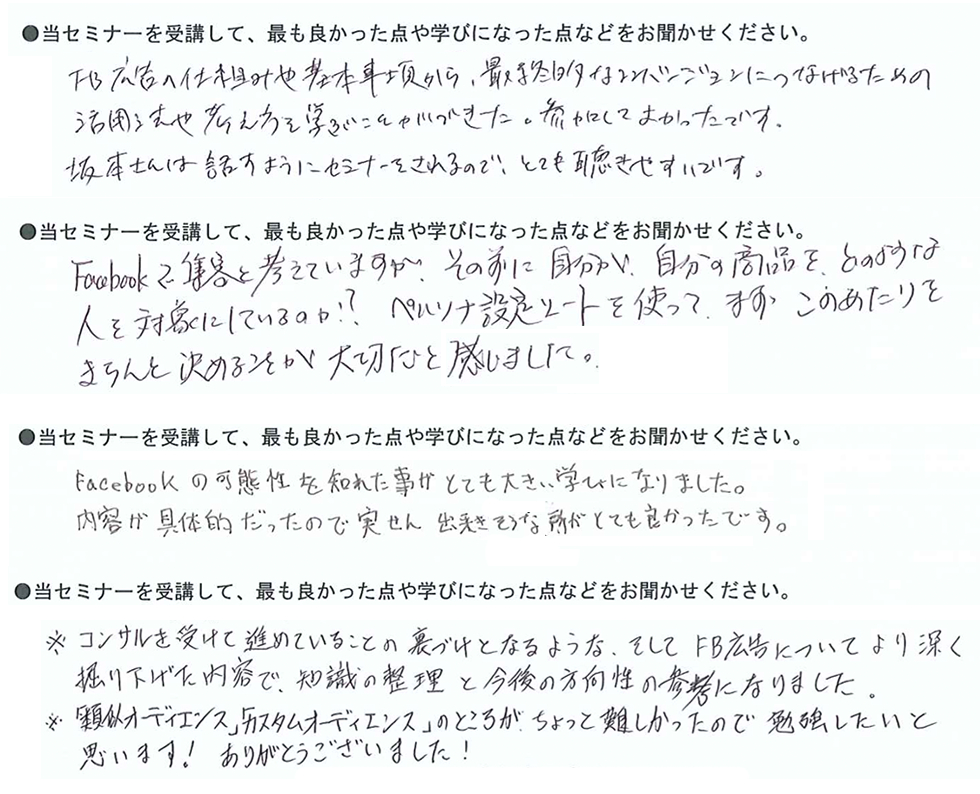 ●当セミナーを受講して、最も良かった点や学びになった点などをお聞かせください。
FB広告の仕組みや基本事項から、最終的なコンバージョンにつなげるための
活用法や考え方を学ぶことができた。参加してよかったです。
坂本さんは話すようにセミナーをされるので、とても聴きやすいです。
●当セミナーを受講して、最も良かった点や学びになった点などをお聞かせください。
Facebookで集客と考えていますが、その前に自分が、自分の商品を、どのような
人を対象にしているのか!? ペルソナ設定シートを使って、まず このあたりを
きちんと決めることが大切だと感じました。
●当セミナーを受講して、最も良かった点や学びになった点などをお聞かせください。
Facebookの可能性を知れた事がとても大きい学びになりました。
内容が具体的だったので実せん出来そうな所がとても良かったです。
●当セミナーを受講して、最も良かった点や学びになった点などをお聞かせください。
※ コンサルを受けて進めていることの裏づけとなるような、そしてFB広告についてより深く
掘り下げた内容で、知識の整理と今後の方向性の参考になりました。
※「類似オーディエンス」「カスタムオーディエンス」のところが、ちょっと難しかったので勉強したいと
思います! ありがとうございました!